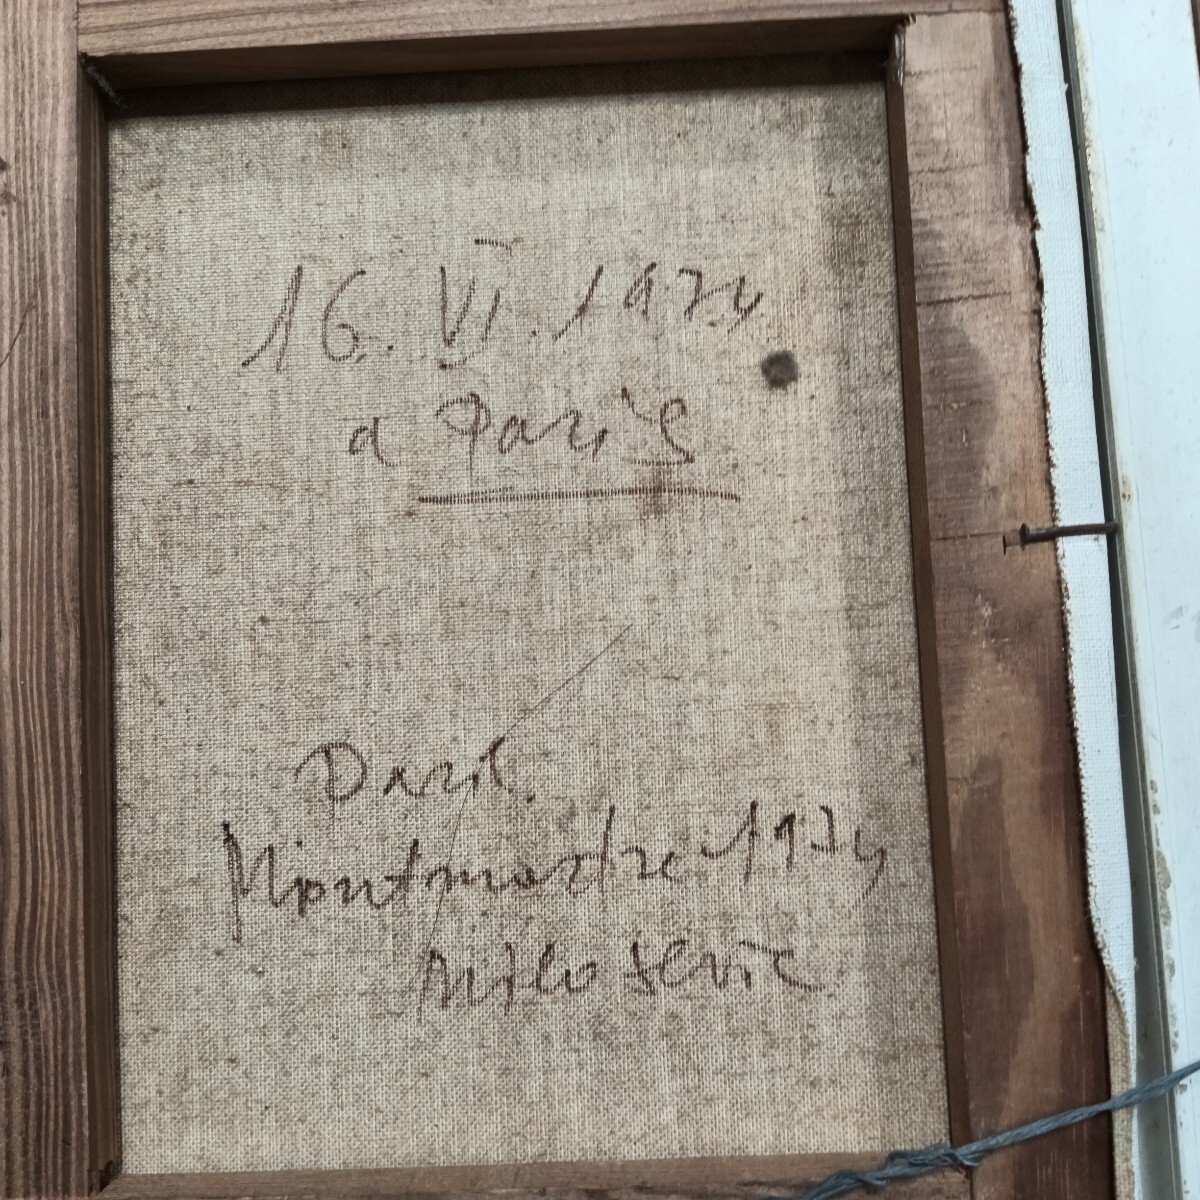 16. VI. 1974
a Paris
Paris
Montmartre 1974